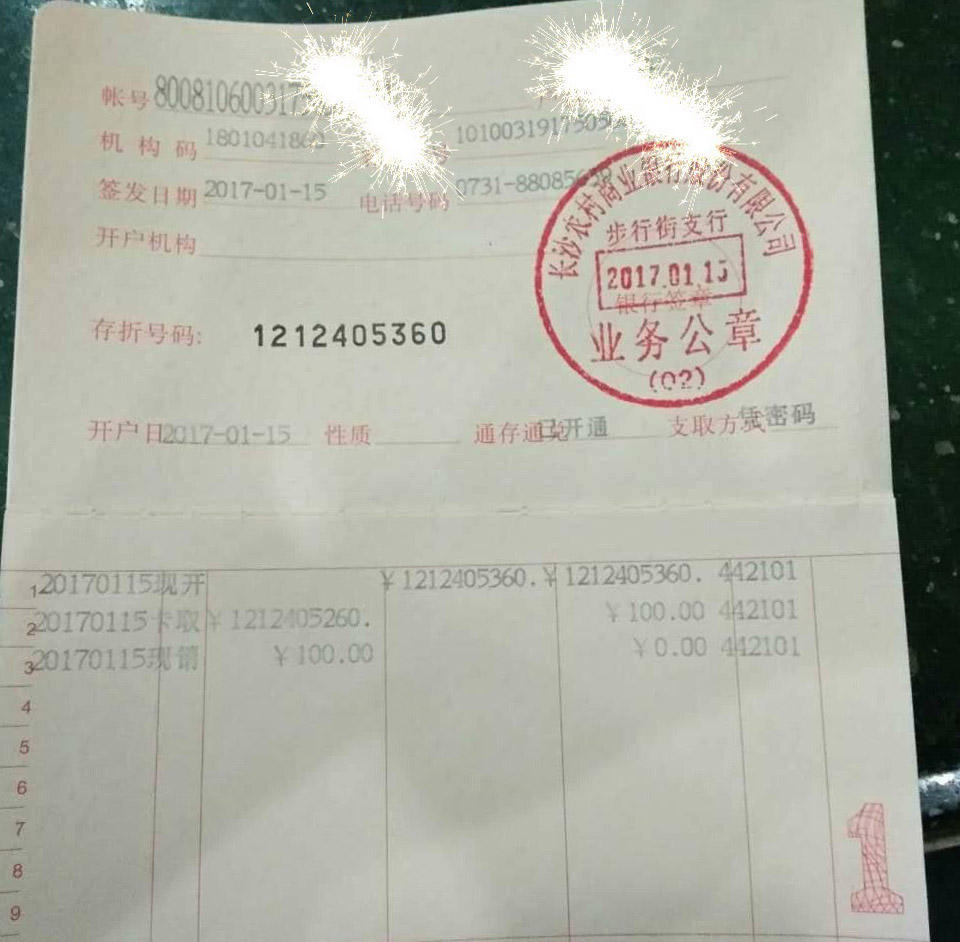 帐号 800810600317
机构码 1801041860 号 1010031917505
签发日期 2017-01-15 电话号码 0731-88085
开户机构
长沙农村商业银行股份有限公司
步行街支行
2017.01.15
银行签章
业务公章
(02)
存折号码: 1212405360
开户日 2017-01-15 性质 通存通兑 已开通 支取方式 凭密码
1 20170115 现开 ¥1212405360. ¥1212405360. 442101
2 20170115 卡取 ¥1212405260. ¥100.00 442101
3 20170115 现销 ¥100.00 ¥0.00 442101
4
5
6
7
8
9
1